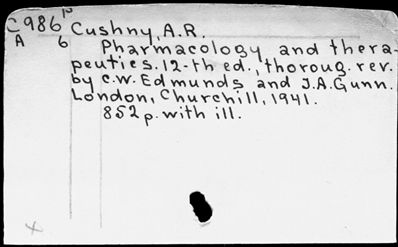 C986p Cushny, A.R.
A 6 Pharmacology and thera-
peutics. 12-th ed., thoroug. rev.
by C.W. Edmunds and J.A. Gunn.
London, Churchill, 1941.
852 p. with ill.
x